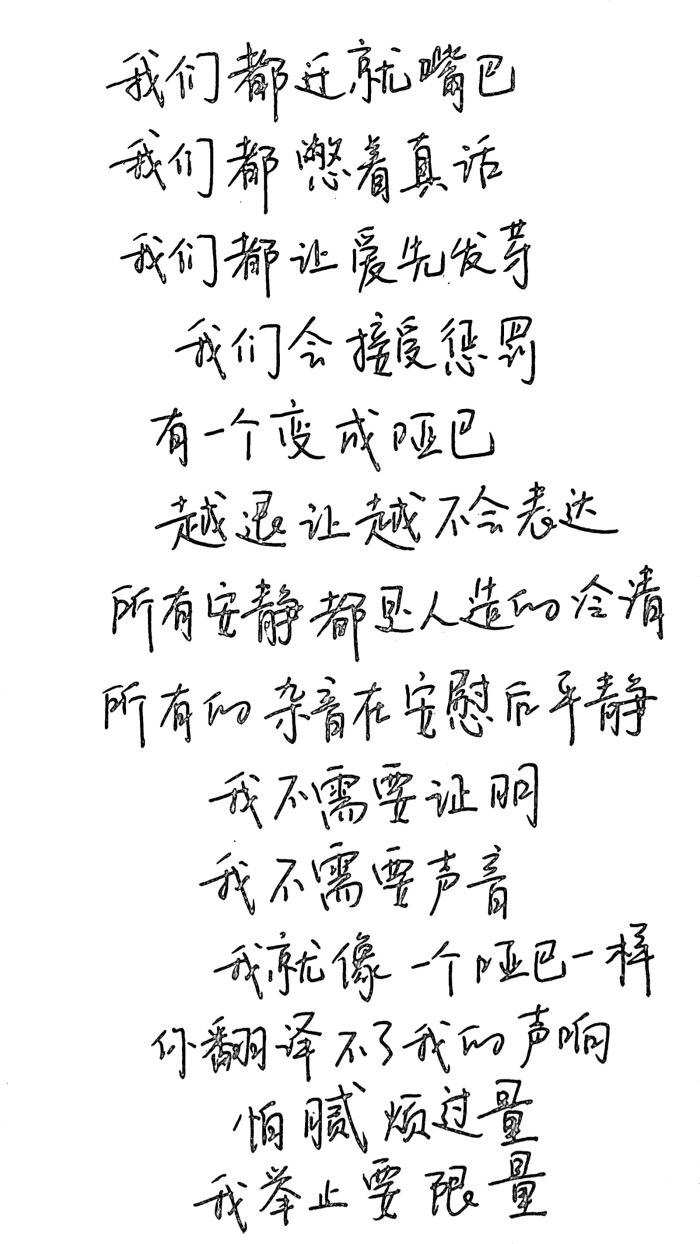 我们都迁就嘴巴
我们都憋着真话
我们都让爱先发芽
我们会接受惩罚
有一个变成哑巴
越退让越不会表达
所有安静都是人造的冷清
所有的杂音在安慰后平静
我不需要证明
我不需要声音
我就像一个哑巴一样
你翻译不了我的声响
怕腻烦过量
我举止要限量